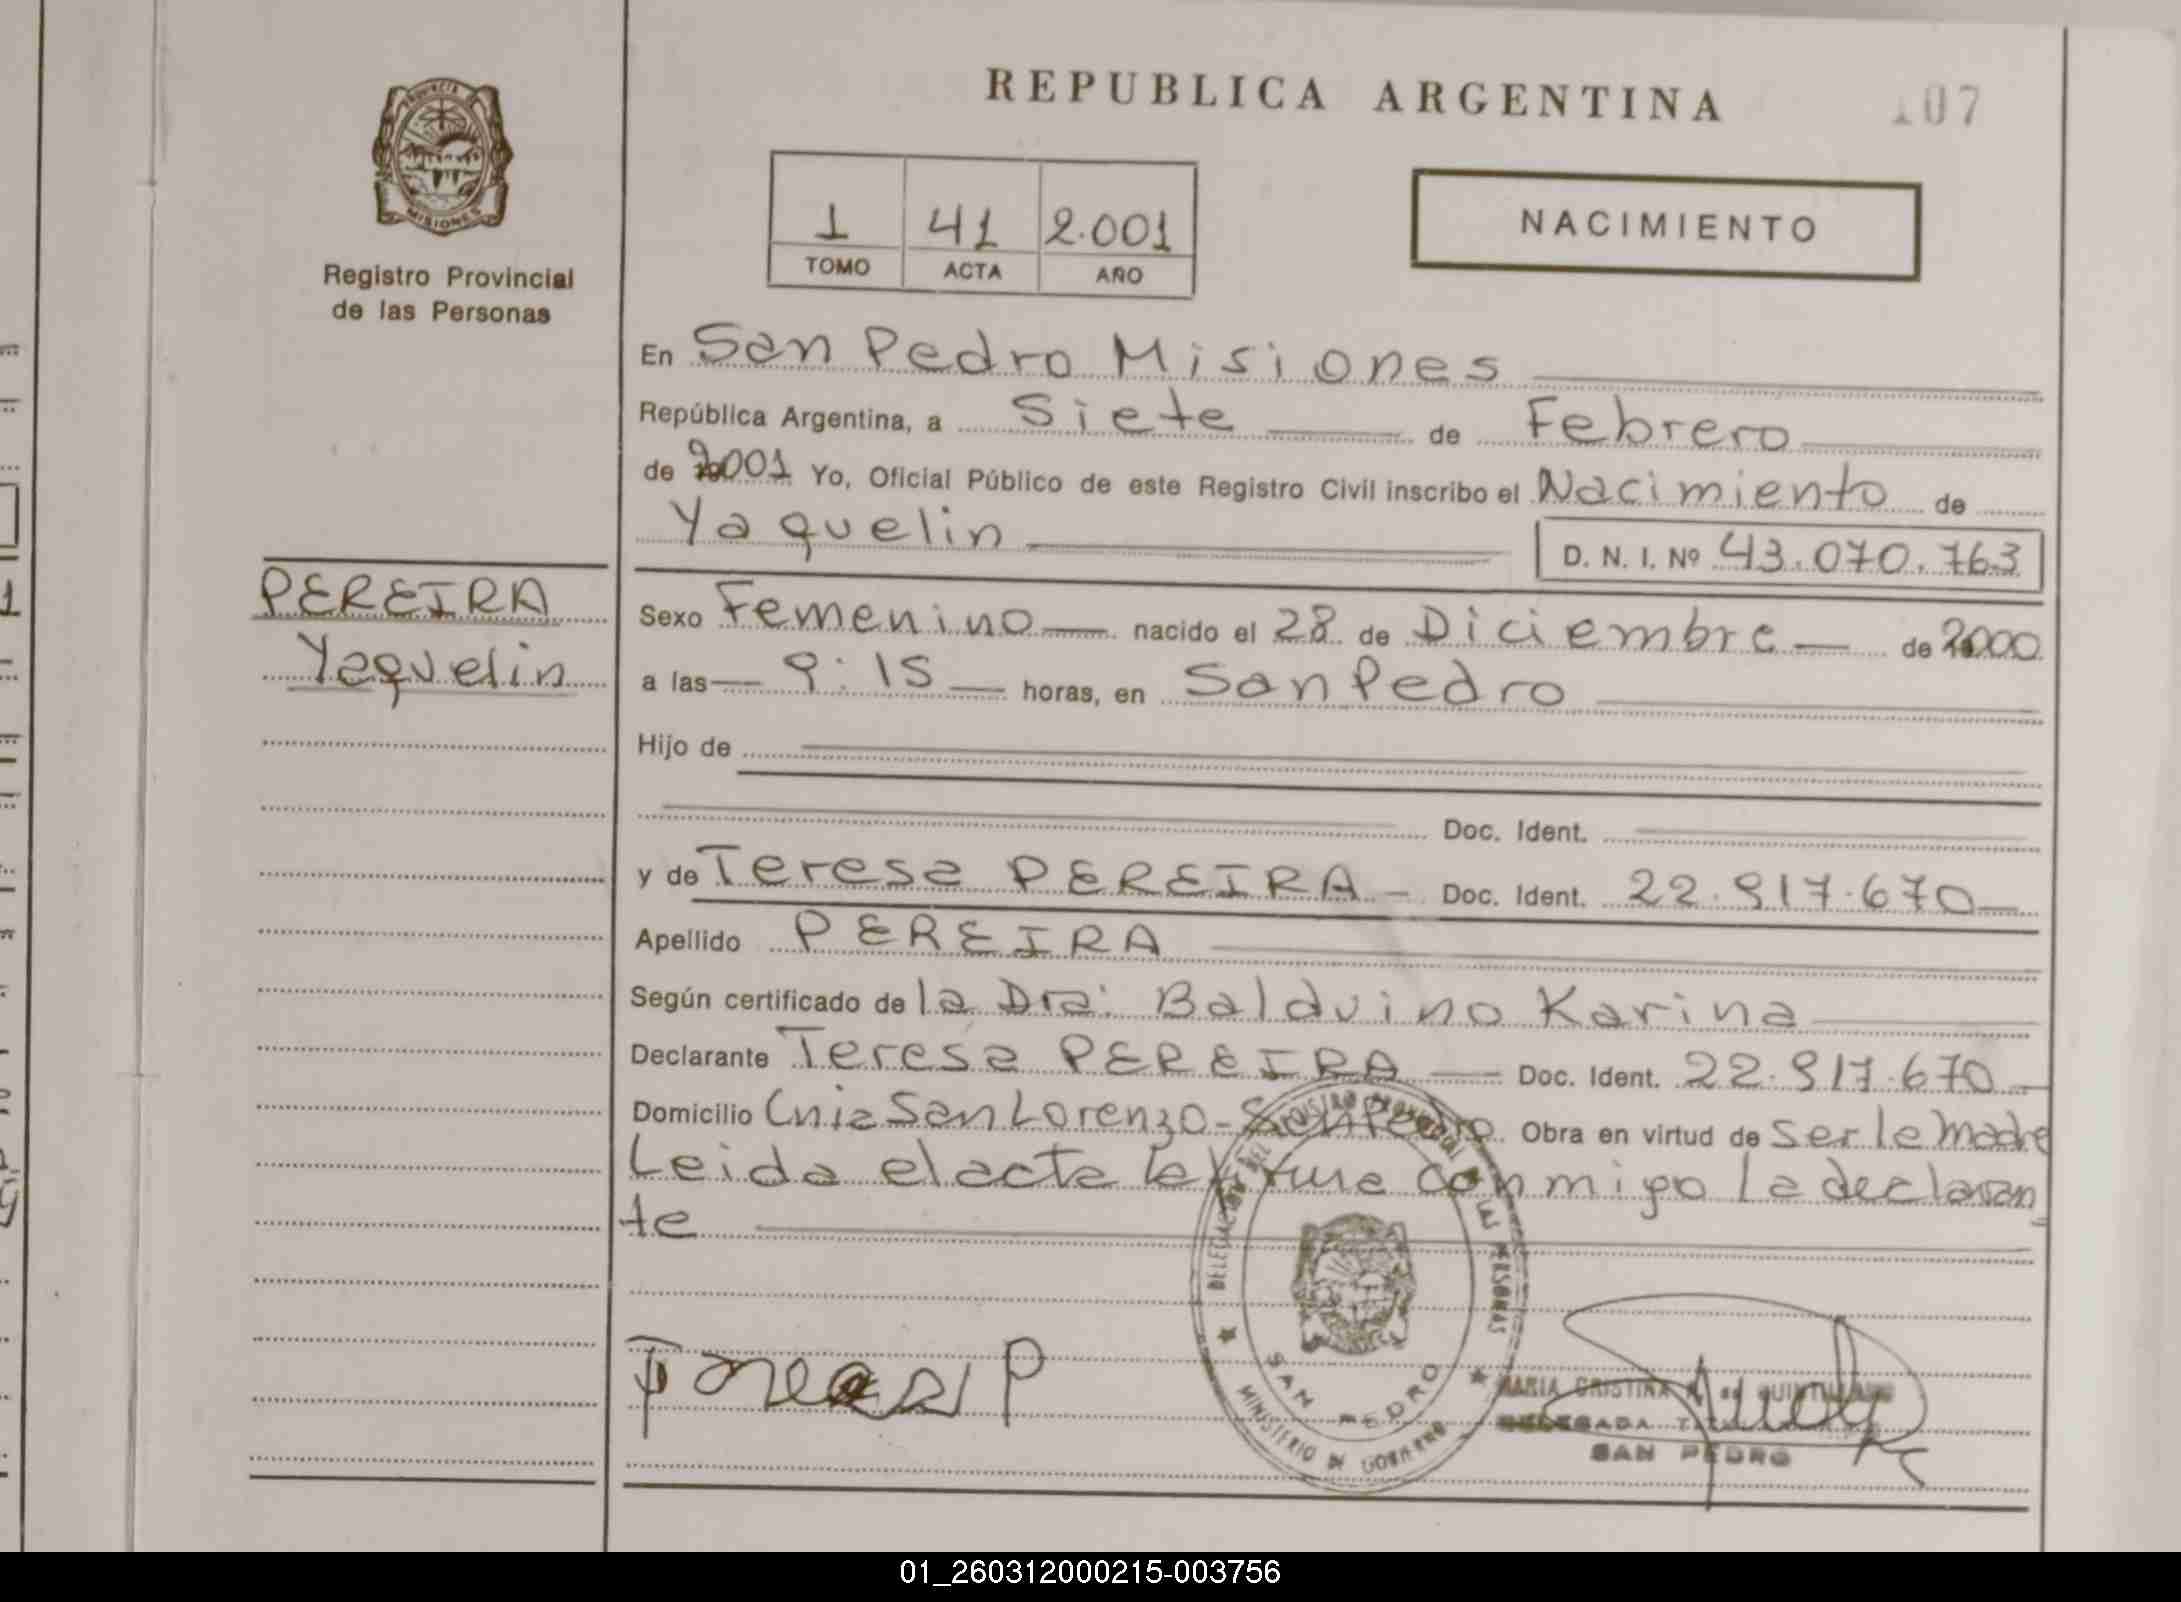 REPUBLICA ARGENTINA
107
PROVINCIA DE
MISIONES
Registro Provincial
de las Personas
1 41 2.001
TOMO ACTA AÑO
NACIMIENTO
En San Pedro Misiones
República Argentina, a Siete de Febrero
de 2001 Yo, Oficial Público de este Registro Civil inscribo el Nacimiento de
Yaquelin D. N. I. Nº 43.070.763
PEREIRA
Yaquelin
Sexo Femenino nacido el 28 de Diciembre de 2000
a las 9:15 horas, en San Pedro
Hijo de
Doc. Ident.
y de Teresa PEREIRA Doc. Ident. 22.917.670
Apellido PEREIRA
Según certificado de la Dra: Balduino Karina
Declarante Teresa PEREIRA Doc. Ident. 22.917.670
Domicilio Cnia San Lorenzo - San Pedro Obra en virtud de ser le madre
Leida el acta la firma conmigo la declaran
te
DELEGACION DEL REGISTRO PROVINCIAL DE LAS PERSONAS
SAN PEDRO
MINISTERIO DE GOBIERNO
MARIA CRISTINA
DELEGADA
SAN PEDRO
01_260312000215-003756